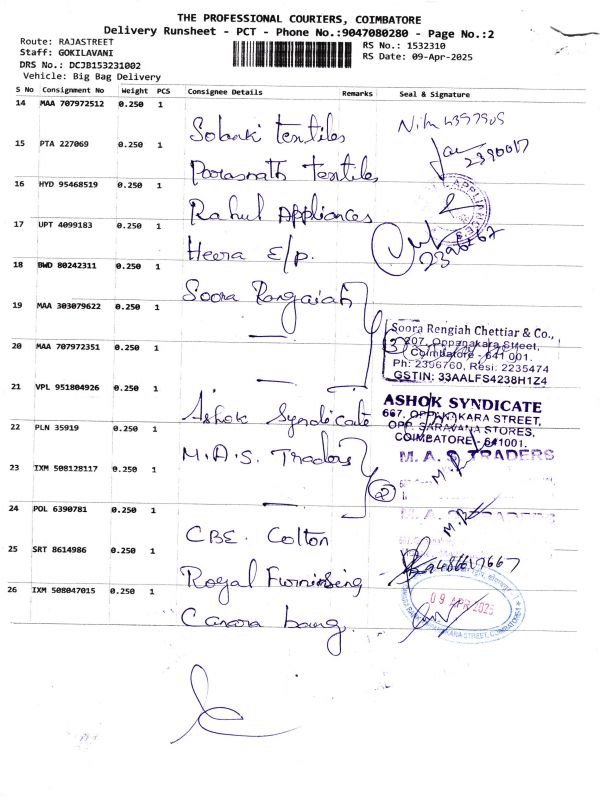 THE PROFESSIONAL COURIERS, COIMBATORE
Delivery Runsheet - PCT - Phone No.:9047080280 - Page No.:2
Route: RAJASTREET
Staff: GOKILAVANI
DRS No.: DCJB153231002
Vehicle: Big Bag Delivery
RS No.: 1532310
RS Date: 09-Apr-2025
S No Consignment No Weight PCS Consignee Details Remarks Seal & Signature
14 MAA 707972512 0.250 1 Solanki textiles
15 PTA 227069 0.250 1 Parasnath textiles 2390017
16 HYD 95468519 0.250 1 Rahul Appliances
17 UPT 4099183 0.250 1 Heera E/p.
18 BWD 80242311 0.250 1 Soora Rangaiah
19 MAA 303079622 0.250 1
20 MAA 707972351 0.250 1
Soora Rengiah Chettiar & Co.,
207, Oppanakara Street,
Coimbatore - 641 001.
Ph: 2396760, Resi: 2235474
GSTIN: 33AALFS4238H1Z4
3
21 VPL 951804926 0.250 1 Ashok Syndicate
ASHOK SYNDICATE
667, OPPANAKARA STREET,
OPP. SARAVANA STORES,
COIMBATORE - 641001.
22 PLN 35919 0.250 1 M.A.S. Traders
M. A. S. TRADERS
23 IXM 508128117 0.250 1
2
24 POL 6390781 0.250 1 CBE. Cotton
25 SRT 8614986 0.250 1 Royal Furnishing
26 IXM 508047015 0.250 1 Canara bang
09 APR 2025